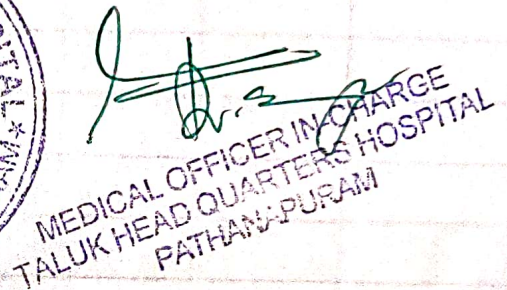 PITAL *
MEDICAL OFFICER IN CHARGE
TALUK HEAD QUARTERS HOSPITAL
PATHANAPURAM